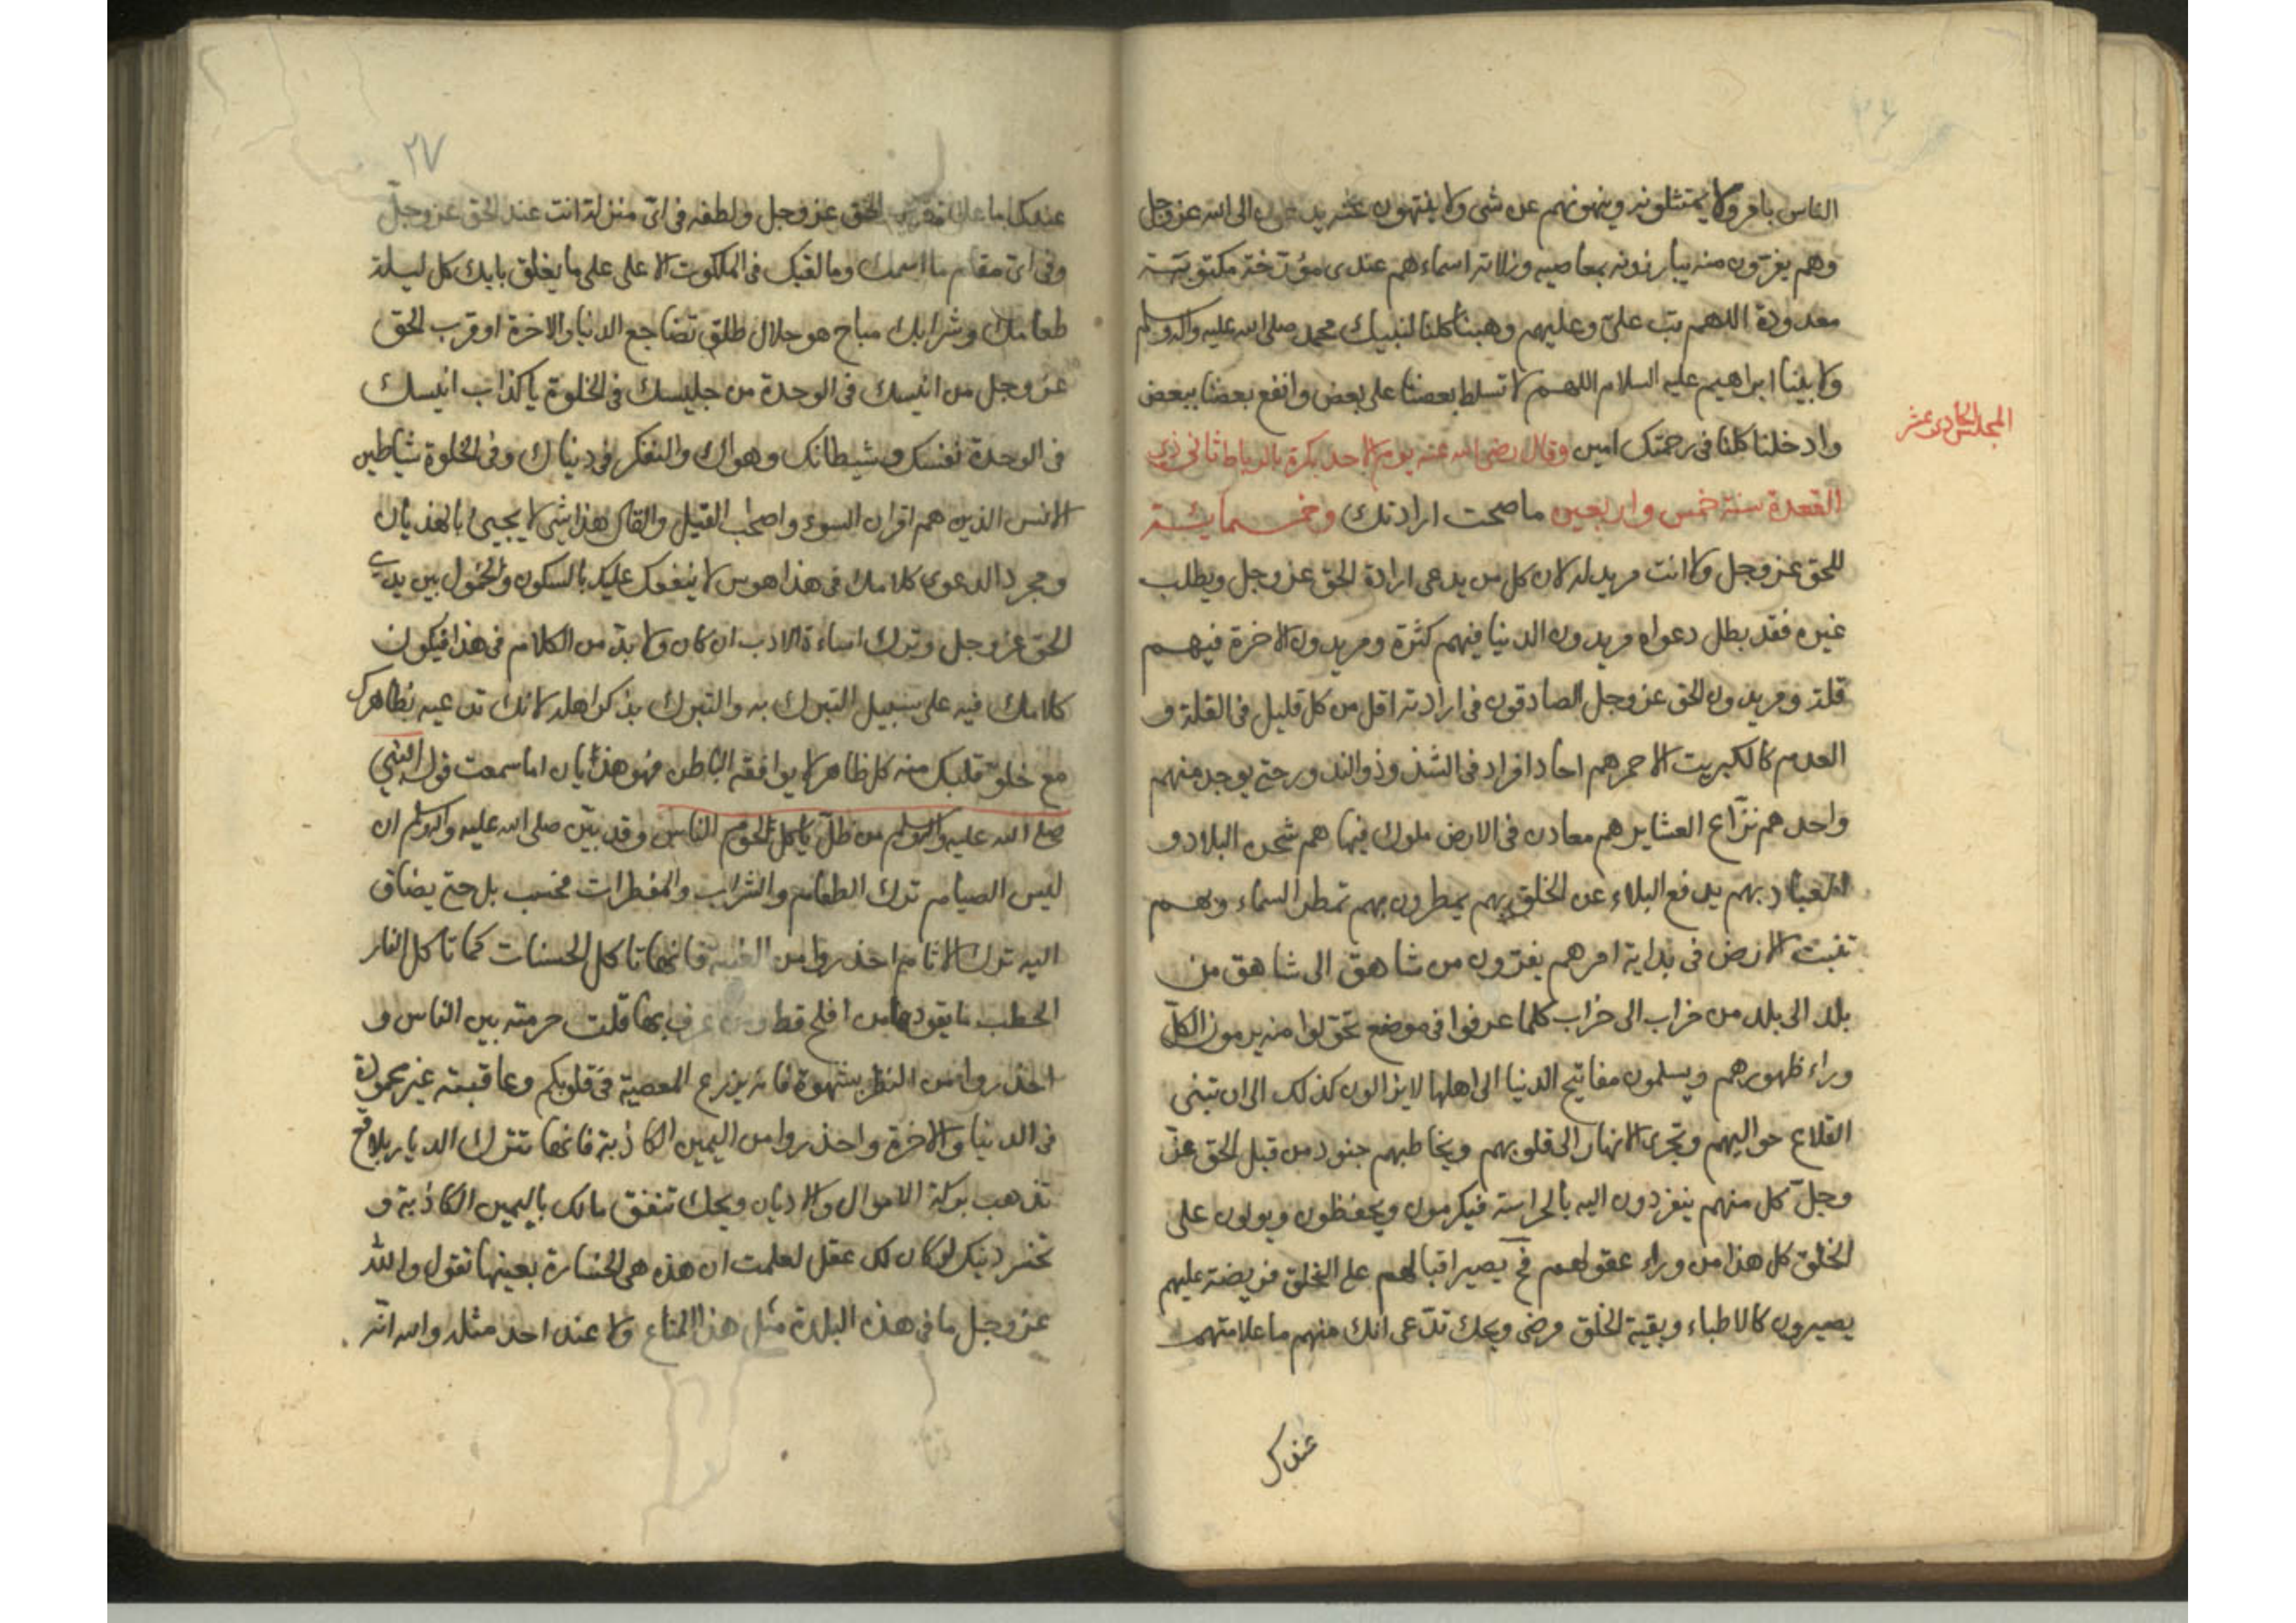 ٢٦
الناس بامر ولا يمتثلونه وينهونهم عن شى ولا ينتهون عنه يدعون الى الله عز وجل
وهم يفرون منه يبارزونه بمعاصيه وزلاته اسماءهم عندى مؤرخة مكتوبة
معدودة اللهم تب على وعليهم وهبنا كلنا لنبيك محمد صلى الله عليه واله وسلم
ولابينا ابراهيم عليه السلام اللهم لا تسلط بعضنا على بعض وانفع بعضنا ببعض
المجلس الحادى عشر
وادخلنا كلنا فى رحمتك امين وقال رضى الله عنه يوم الاحد بكرة بالرباط ثانى ذى
القعدة سنة خمس واربعين ما صحت ارادتك وخمسمايئة
للحق عز وجل ولا انت مريد له لان كل من يدعى ارادة الحق عز وجل ويطلب
غيره فقد بطل دعواه مريدون الدنيا فيهم كثرة ومريدون الاخرة فيهم
قلة ومريدون الحق عز وجل الصادقون فى ارادته اقل من كل قليل فى القلة و
العدم كالكبريت الاحمر هم احاد افراد فى الشذوذ والندور حتى يوجد منهم
واحد هم نزاع العشاير هم معادن فى الارض ملوك فيها هم شحن البلاد و
العباد بهم يدفع البلاء عن الخلق بهم يمطرون بهم تمطر السماء وبهم
تنبت الارض فى بداية امرهم يفرون من شاهق الى شاهق من
بلد الى بلد من خراب الى خراب كلما عرفوا فى موضع تحولوا منه يرمون الكل
وراء ظهورهم ويسلمون مفاتيح الدنيا الى اهلها لايزالون كذلك الى ان تبنى
القلاع حواليهم وتجرى الانهار الى قلوبهم ويخاطبهم جنود من قبل الحق عز
وجل كل منهم ينفردون اليه بالحراسة فيكرمون ويحفظون ويولون على
الخلق كل هذا من وراء عقولهم فح يصير اقبالهم على الخلق فريضة عليهم
يصيرون كالاطباء وبقية الخلق مرضى ويحك تدعى انك منهم ما علامتهم
عندك
٢٧
عندك ما علامة قرب الحق عز وجل ولطفه فى اى منزلة انت عند الحق عز وجل
وفى اى مقام ما اسمك وما لقبك فى الملكوت الاعلى على ما يغلق بابك كل ليلة
طعامك وشرابك مباح هو حلال طلق تضاجع الدنيا والاخرة او قرب الحق
عز وجل من انيسك فى الوحدة من جليسك فى الخلوة يا كذاب انيسك
فى الوحدة نفسك وشيطانك وهواك والتفكر فى دنياك وفى الخلوة شياطين
الانس الذين هم اقران السوء واصحاب القيل والقال هذا شى لا يجيئ بالهذيان
ومجرد الدعوى كلامك فى هذا هوس لا ينفعك عليك بالسكون والخمول بين يدى
الحق عز وجل وترك اساءة الادب ان كان ولا بد من الكلام فى هذا فيكون
كلامك فيه على سبيل التبرك به والتبرك بذكر اهله لانك تدعيه بظاهرك
مع خلو قلبك منه كل ظاهر لا يوافقه الباطن فهو هذيان اما سمعت قول النبى
صلى الله عليه واله وسلم من ظل ياكل لحوم الناس وقد بين صلى الله عليه واله وسلم ان
ليس الصيام ترك الطعام والشراب والمفطرات فحسب بل حتى يضاف
اليه ترك الاثام احذروا من الغيبة فانها تاكل الحسنات كما تاكل النار
الحطب ما يقودها من افلح قط ومن عرف بها قلت حرمته بين الناس و
احذروا من النظر بشهوة فانه يزرع المعصية فى قلوبكم وعاقبته غير محمودة
فى الدنيا والاخرة واحذروا من اليمين الكاذبة فانها تترك الديار بلاقع
تذهب بركة الاموال والاديان ويحك تنفق مالك باليمين الكاذبة و
تخسر دينك لو كان لك عقل لعلمت ان هذه هى الخسارة بعينها تقول والله
عز وجل ما فى هذه البلدة مثل هذا المتاع ولا عند احد مثله والله انه